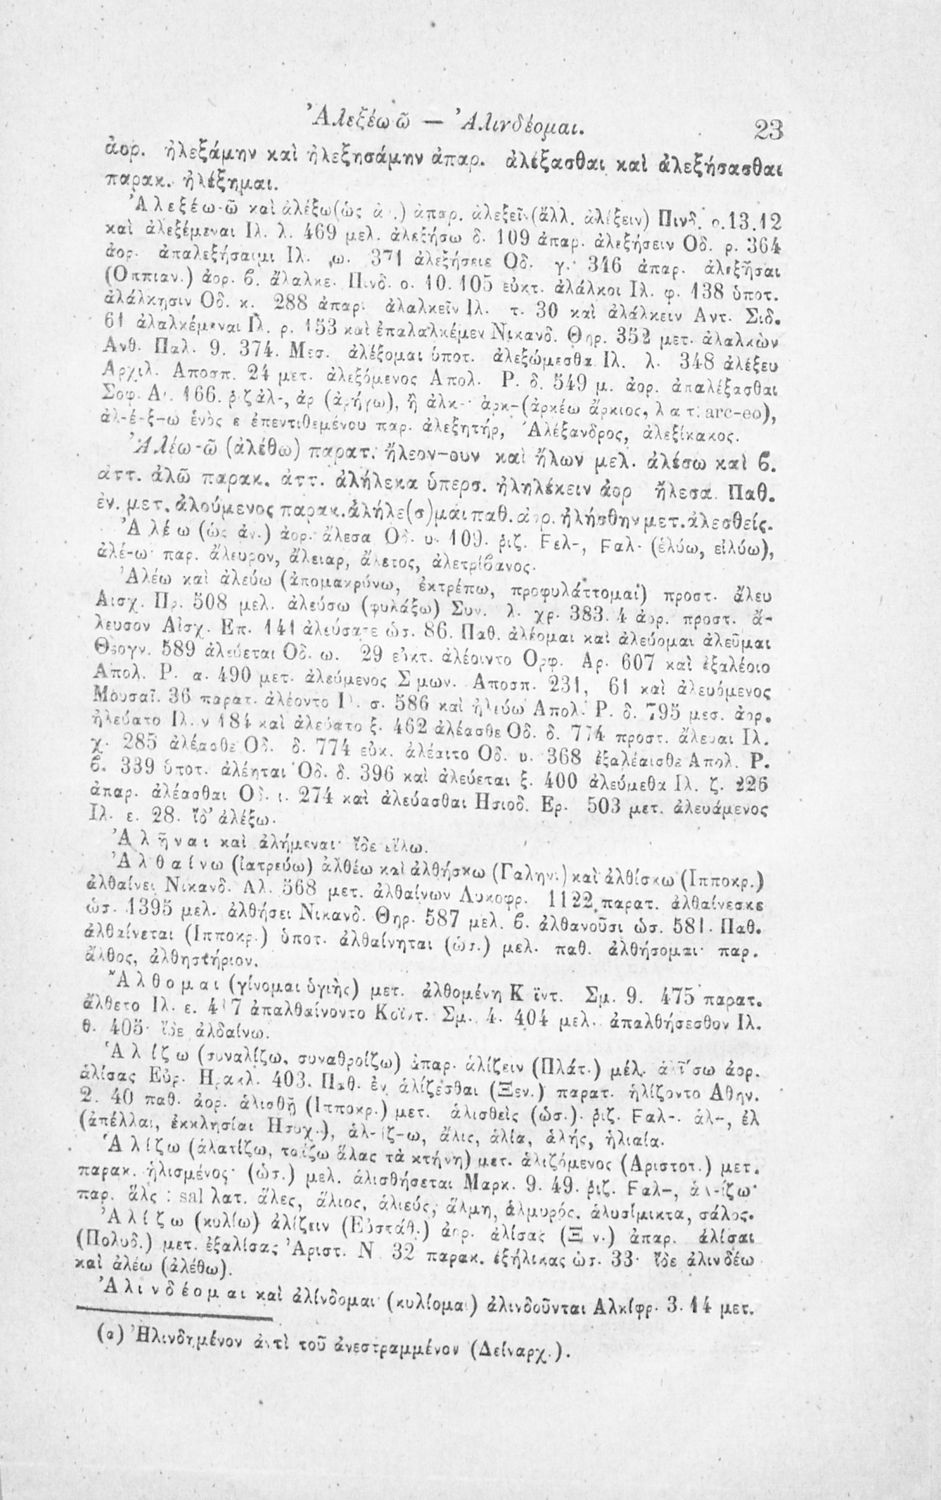 Ἀλεξέω ῶ — Ἀλινδέομαι. 23
ἀορ. ἠλεξάμην καὶ ἠλεξησάμην ἀπαρ. ἀλέξασθαι καὶ ἀλεξήσασθαι
παρακ. ἠλέξημαι.
Ἀλεξέω-ῶ καὶ ἀλέξω(ὡς ἀ .) ἀπαρ. ἀλεξεῖν (ἄλλ. ἀλέξειν) Πινδ. ο.13.12
καὶ ἀλεξέμεναι Ιλ. λ. 469 μελ. ἀλεξήσω δ. 109 ἀπαρ. ἀλεξήσειν Οδ. ρ. 364
ἀορ. ἀπαλεξήσαιμι Ιλ. ω. 371 ἀλεξήσειε Οδ. γ. 346 ἀπαρ. ἀλεξῆσαι
(Οππιαν.) ἀορ. β. ἄλαλκε Πινδ. ο. 10. 105 εὐκτ. ἀλάλκοι Ιλ. φ. 138 ὑποτ.
ἀλάλκησιν Οδ. κ. 288 ἀπαρ. ἀλαλκεῖν Ιλ. τ. 30 καὶ ἀλάλκειν Αντ. Σιδ.
61 ἀλαλκέμεναι Ιλ. ρ. 153 καὶ ἐπαλαλκέμεν Νικανδ. Θηρ. 352 μετ. ἀλαλκὼν
Ανθ. Παλ. 9. 374. Μεσ. ἀλέξομαι ὑποτ. ἀλεξώμεσθα Ιλ. λ. 348 ἀλέξευ
Αρχιλ. Αποσπ. 24 μετ. ἀλεξόμενος Απολ. Ρ. δ. 549 μ. ἀορ. ἀπαλέξασθαι
Σοφ. Αἴ. 166. ῥιζ ἀλ-, ἀρ (ἀρήγω), ἢ ἀλκ- ἀρκ-(ἀρκέω ἄρκιος, λατ. arc-eo),
ἀλ-έ-ξ-ω ἑνὸς ε ἐπεντιθεμένου παρ. ἀλεξητήρ, Ἀλέξανδρος, ἀλεξίκακος.
Ἀλέω-ῶ (ἀλέθω) παρατ. ἤλεον-ουν καὶ ἤλων μελ. ἀλέσω καὶ β.
ἀττ. ἀλῶ παρακ. ἀττ. ἀλήλεκα ὑπερσ. ἠληλέκειν ἀορ ἤλεσα. Παθ.
ἐν. μετ. ἀλούμενος παρακ. ἀλήλε(σ)μαι παθ. ἀορ. ἠλήσθην μετ. ἀλεσθείς.
Ἀλέω (ὡς ἀν.) ἀορ. ἄλεσα Οδ. υ. 109. ῥιζ. Fελ-, Fαλ- (ἐλύω, εἰλύω),
ἀλέ-ω παρ. ἄλευρον, ἄλειαρ, ἄλετος, ἀλετρίβανος.
Ἀλέω καὶ ἀλεύω (ἀπομακρύνω, ἐκτρέπω, προφυλάττομαι) προστ. ἄλευ
Αισχ. Πρ. 508 μελ. ἀλεύσω (φυλάξω) Συν. λ. χρ. 383. 4 ἀορ. προστ. ἄ-
λευσον Αἰσχ. Επ. 141 ἀλεύσατε ὡσ. 86. Παθ. ἀλέομαι καὶ ἀλεύομαι ἀλεῦμαι
Θεογν. 589 ἀλεύεται Οδ. ω. 29 εὐκτ. ἀλέοιντο Ορφ. Αρ. 607 καὶ ἐξαλέοιο
Απολ. Ρ. α. 490 μετ. ἀλεύμενος Σιμων. Αποσπ. 231, 61 καὶ ἀλευόμενος
Μουσαῖ. 36 παρατ. ἀλέοντο Ιλ. σ. 586 καὶ ἠλεύω Απολ. Ρ. δ. 795 μεσ. ἀορ.
ἠλεύατο Ιλ. ν 184 καὶ ἀλεύατο ξ. 462 ἀλέασθε Οδ. δ. 774 προστ. ἄλευαι Ιλ.
χ. 285 ἀλέασθε Οδ. δ. 774 εὐκ. ἀλέαιτο Οδ. υ. 368 ἐξαλέαισθε Απολ. Ρ.
β. 339 ὑποτ. ἀλέηται Ὀδ. δ. 396 καὶ ἀλεύεται ξ. 400 ἀλεύμεθα Ιλ. ζ. 226
ἀπαρ. ἀλέασθαι Οδ. ι. 274 καὶ ἀλεύασθαι Ησιοδ. Ερ. 503 μετ. ἀλευάμενος
Ιλ. ε. 28. ἴδ' ἀλέξω.
Ἀλῆναι καὶ ἀλήμεναι ἴδε εἴλω.
Ἀλθαίνω (ἰατρεύω) ἀλθέω καὶ ἀλθήσκω (Γαλην.) καὶ ἀλθίσκω (Ιπποκρ.)
ἀλθαίνει Νικανδ. Αλ. 568 μετ. ἀλθαίνων Λυκοφρ. 1122 παρατ. ἀλθαίνεσκε
ὡσ. 1395 μελ. ἀλθήσει Νικανδ. Θηρ. 587 μελ. β. ἀλθανοῦσι ὡσ. 581. Παθ.
ἀλθαίνεται (Ιπποκρ.) ὑποτ. ἀλθαίνηται (ὡσ.) μελ. παθ. ἀλθήσομαι παρ.
ἄλθος, ἀλθηστήριον.
Ἄλθομαι (γίνομαι ὑγιής) μετ. ἀλθομένη Κ ϊντ. Σμ. 9. 475 παρατ.
ἄλθετο Ιλ. ε. 417 ἀπαλθαίνοντο Κοϊντ. Σμ. 4. 404 μελ. ἀπαλθήσεσθον Ιλ.
θ. 405 ἴδε ἀλδαίνω.
Ἁλίζω (συναλίζω, συναθροίζω) ἀπαρ. ἁλίζειν (Πλάτ.) μέλ. ἁλίσω ἀορ.
ἁλίσας Εὐρ. Ηρακλ. 403. Παθ. ἐν. ἁλίζεσθαι (Ξεν.) παρατ. ἡλίζοντο Αθην.
2. 40 παθ. ἀορ. ἁλισθῇ (Ιπποκρ.) μετ. ἁλισθεὶς (ὡσ.). ῥιζ. Fαλ-. ἁλ-, ἐλ
(ἀπέλλαι, ἐκκλησίαι Ησυχ.), ἁλ-ίζ-ω, ἅλις, ἁλία, ἁλής, ἡλιαία.
Ἁλίζω (ἁλατίζω, ταΐζω ἅλας τὰ κτήνη) μετ. ἁλιζόμενος (Αριστοτ.) μετ.
παρακ. ἡλισμένος (ὡσ.) μελ. ἁλισθήσεται Μαρκ. 9. 49. ῥιζ. Fαλ-, ἁλ-ίζω
παρ. ἅλς : sal λατ. ἅλες, ἅλιος, ἁλιεύς, ἅλμη, ἁλμυρός. ἁλυσίμικτα, σάλος.
Ἀλίζω (κυλίω) ἀλίζειν (Εὐστάθ.) ἀορ. ἀλίσας (Ξ ν.) ἀπαρ. ἀλίσαι
(Πολυδ.) μετ. ἐξαλίσας Ἀριστ. Ν 32 παρακ. ἐξήλικας ὡσ. 33 ἴδε ἀλινδέω
καὶ ἀλέω (ἀλέθω).
Ἀλινδέομαι καὶ ἀλίνδομαι (κυλίομαι) ἀλινδοῦνται Αλκίφρ. 3. 14 μετ.
(α) Ἠλινδημένον ἀντὶ τοῦ ἀνεστραμμένον (Δείναρχ.).